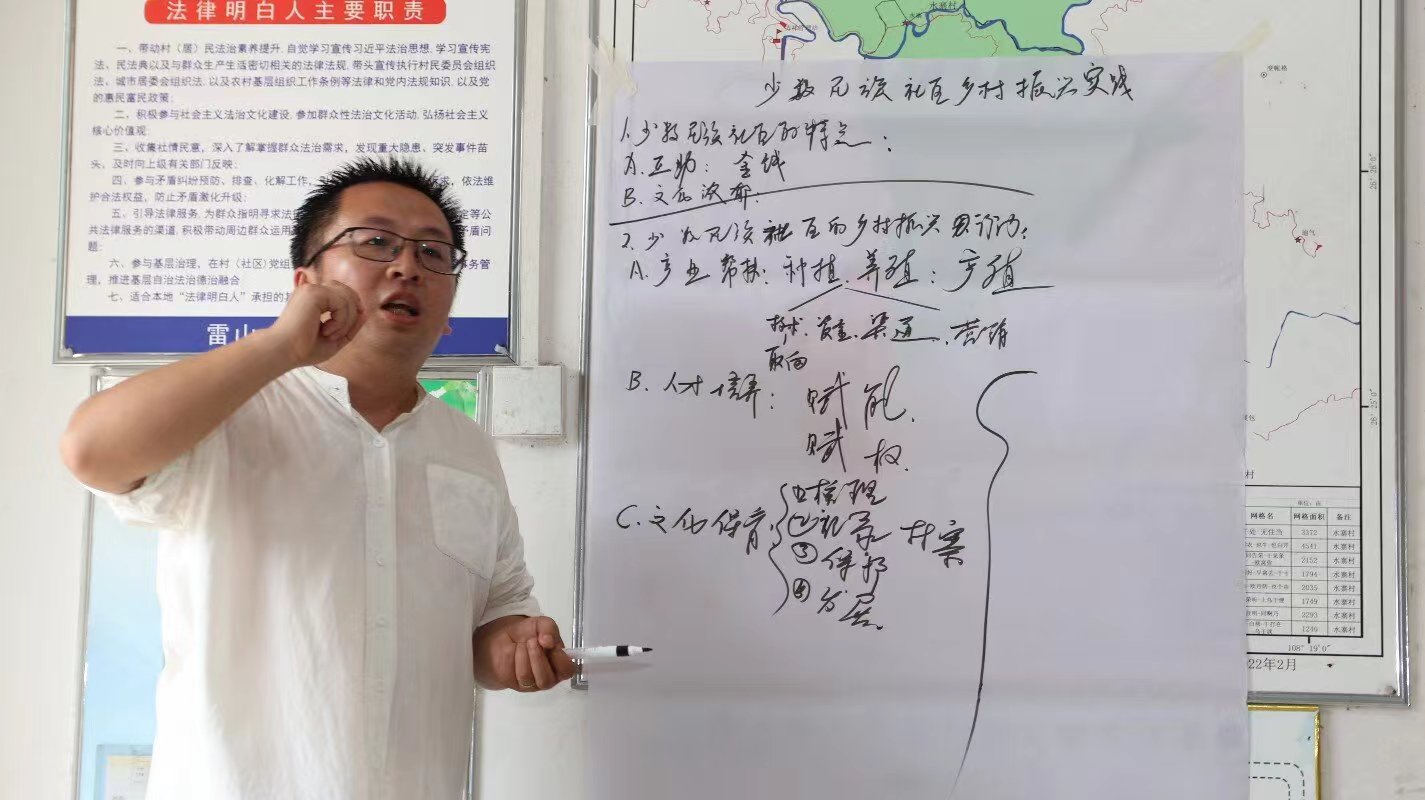 法律明白人主要职责
一、带动村（居）民法治素养提升，自觉学习宣传习近平法治思想，学习宣传宪
法、民法典以及与群众生产生活密切相关的法律法规，带头宣传执行村民委员会组织
法、城市居委会组织法，以及农村基层组织工作条例等法律和党内法规知识，以及党
的惠民富民政策；
二、积极参与社会主义法治文化建设，参加群众性法治文化活动，弘扬社会主义
核心价值观；
三、收集社情民意，深入了解掌握群众法治需求，发现重大隐患、突发事件苗
头，及时向上级有关部门反映；
四、参与矛盾纠纷预防、排查、化解工作，
求，依法维
护合法权益，防止矛盾激化升级；
五、引导法律服务，为群众指明寻求法
定等公
共法律服务的渠道，积极带动周边群众运用
矛盾问
题；
六、参与基层治理，在村（社区）党组
事务管
理，推进基层自治法治德治融合
七、适合本地“法律明白人”承担的其
雷山
少数民族社区乡村振兴实践
1.少数民族社区的特点：
A.互助：
B.文化浓郁：
2.少数民族社区的乡村振兴
A.产业帮扶：种植.养殖：产殖
技术.资金.渠道.营销
B.人才培养：赋能.
赋权.
C.文化保育：
①梳理
②记录 村寨
③保护
④发展
水寨村
网格名 网格面积 备注
3372 水寨村
4541 水寨村
2152 水寨村
1794 水寨村
2035 水寨村
1749 水寨村
2293 水寨村
1240 水寨村
108°19′0″
22年2月
26°26′0″
26°25′0″